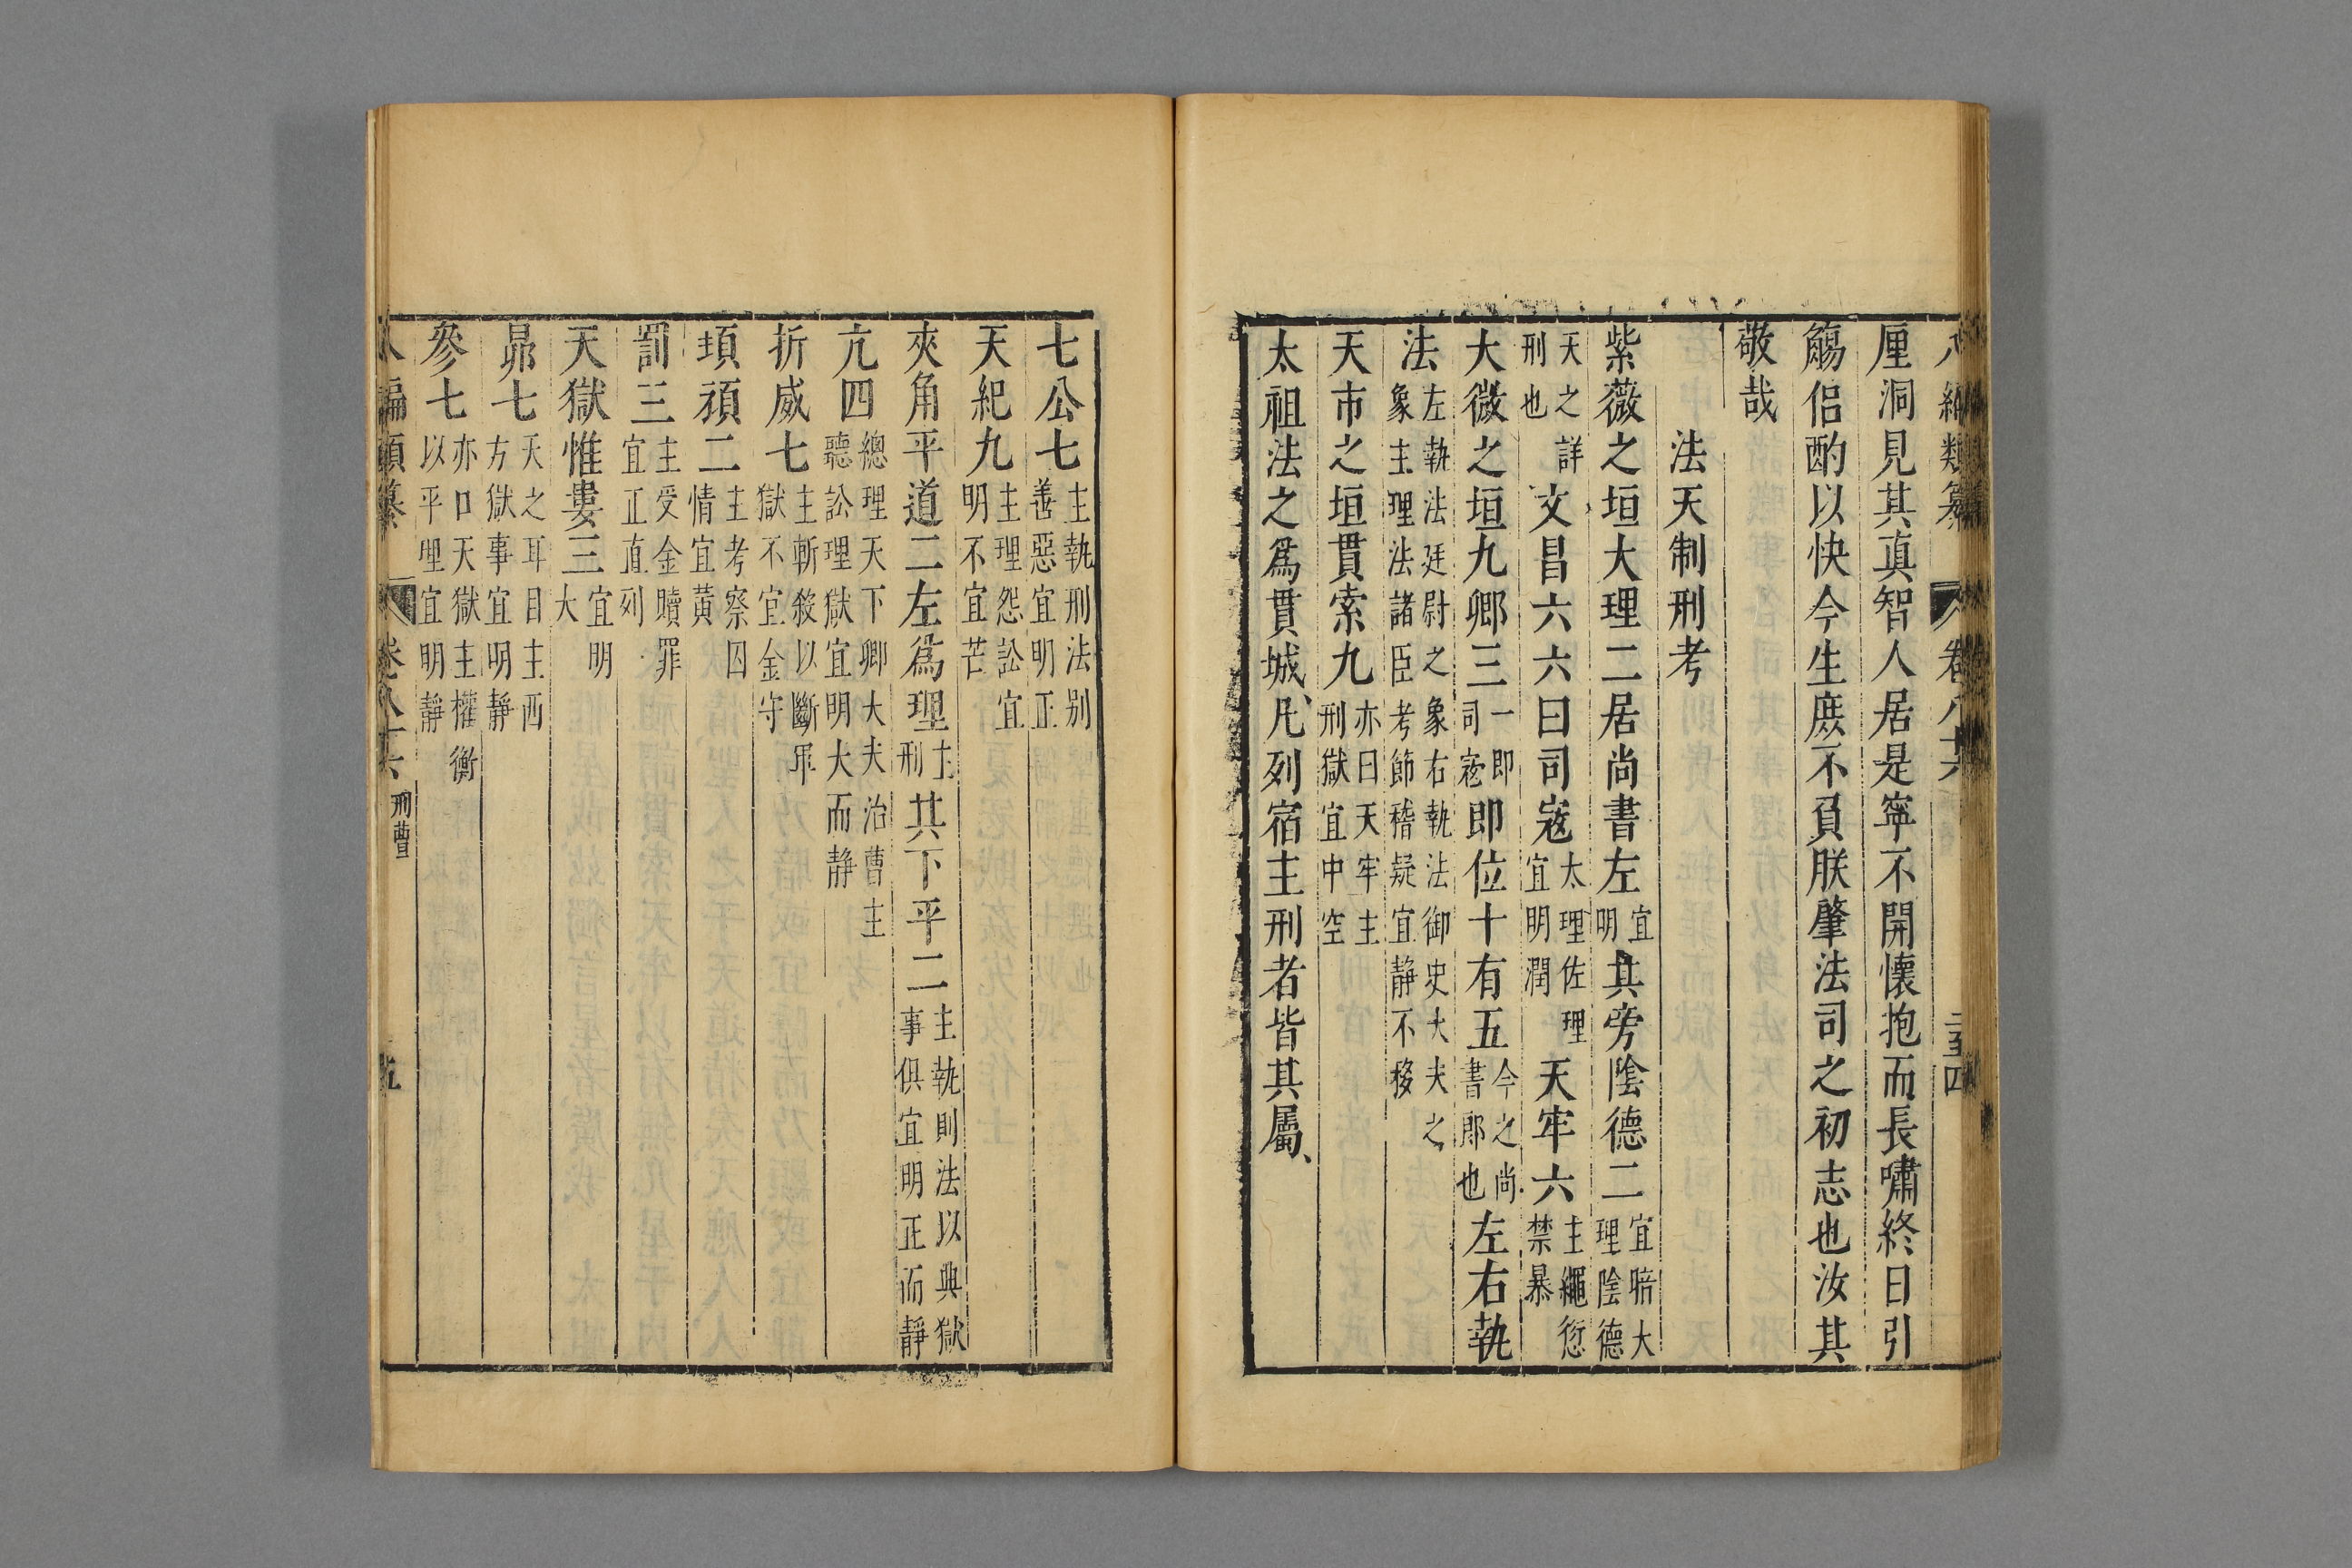 八編類纂 卷八十六 二百四
厘洞見其眞智人居是寜不開懷抱而長嘯終日引
觴侣酌以快今生庶不負朕肇法司之初志也汝其
敬哉
法天制刑考
紫薇之垣大理二居尚書左宜明其旁陰德二宜暗大理陰德
天之詳刑也文昌六六曰司寇太理佐理宜明潤天牢六主繩愆禁暴
大微之垣九卿三一即司宼即位十有五今之尚書郎也左右執
法左執法廷尉之象右執法御史大夫之象主理法諸臣考節稽疑宜静不移
天市之垣貫索九亦曰天牢主刑獄宜中空
太祖法之爲貫城凡列宿主刑者皆其屬
七公七主執刑法别善惡宜明正
天紀九主理怨訟宜明不宜芒
夾角平道二左爲理主刑其下平二主執則法以典獄事俱宜明正而靜
亢四總理天下卿大夫治曹主聽訟理獄宜明大而静
折威七主斬殺以斷軍獄不宜金守
頊頑二主考察囚情宜黄
罰三主受金贖罪宜正直列
天獄惟婁三宜明大
昴七天之耳目主西方獄事宜明靜
參七亦曰天獄主權衡以平理宜明靜
八編類纂 卷八十六 刑曹 五